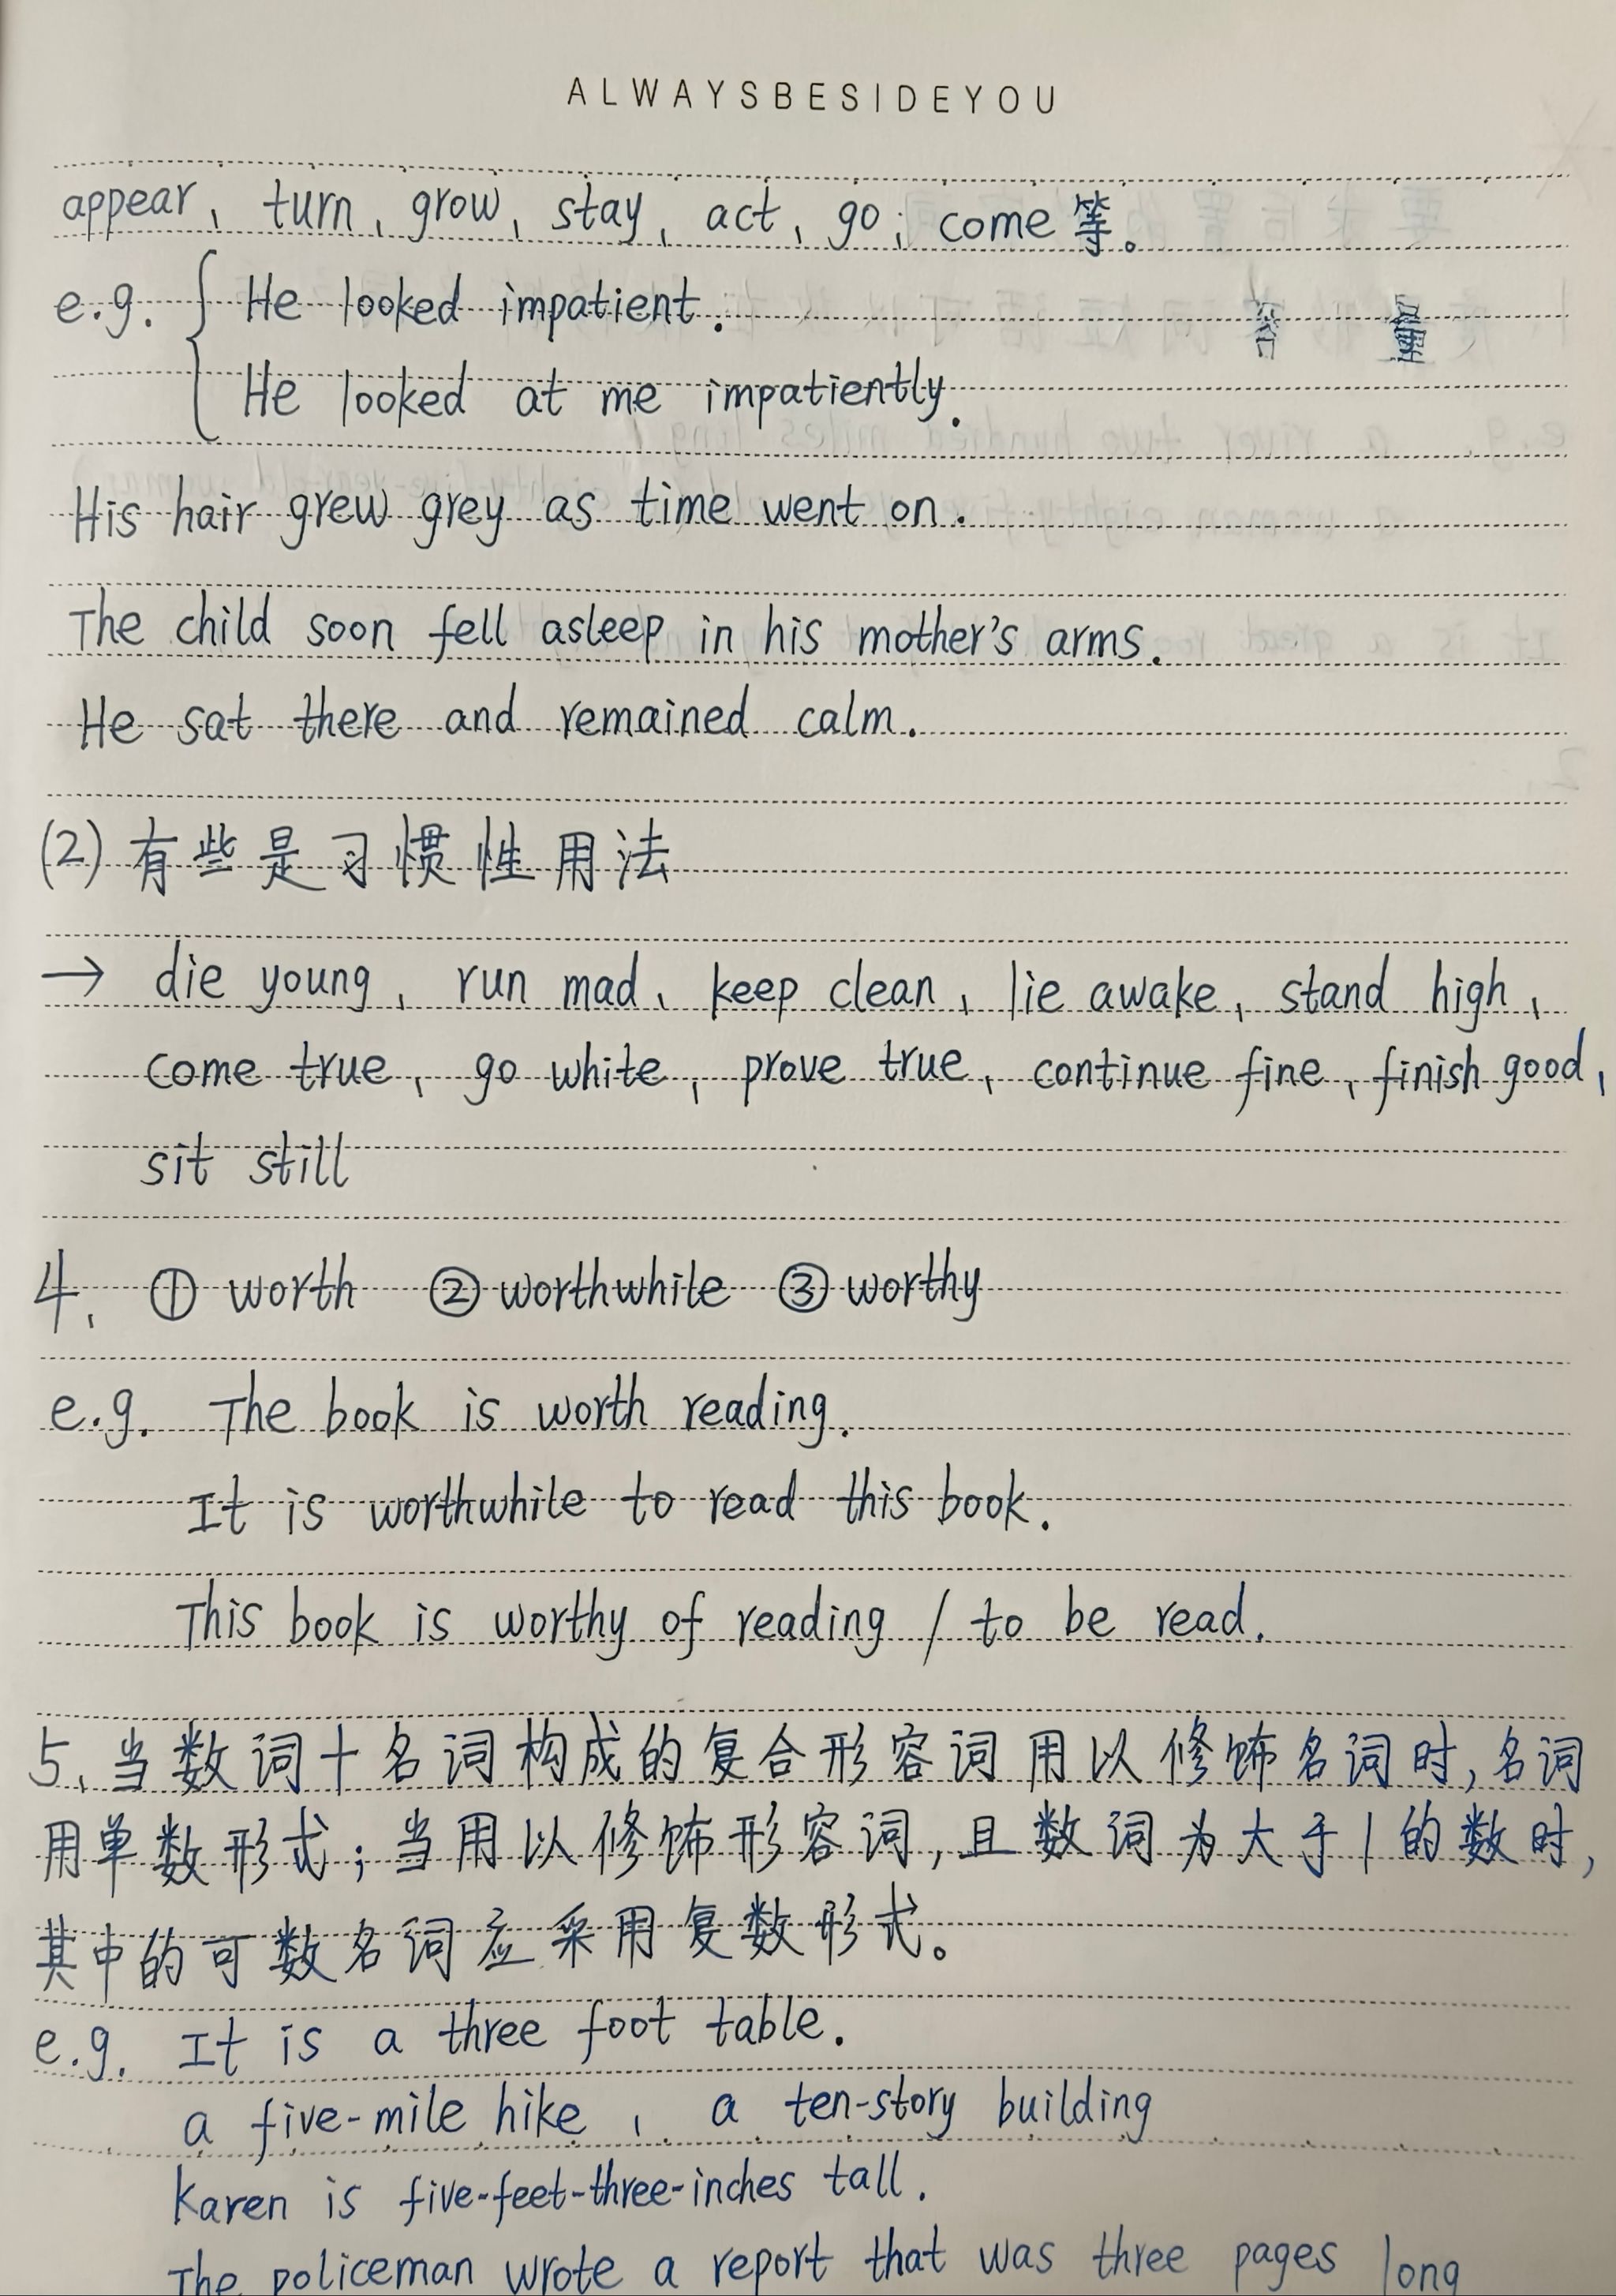 ALWAYSBESIDEYOU
appear, turn, grow, stay, act, go, come等。
e.g. He looked impatient.
He looked at me impatiently.
His hair grew grey as time went on.
The child soon fell asleep in his mother's arms.
He sat there and remained calm.
(2) 有些是习惯性用法
→ die young, run mad, keep clean, lie awake, stand high,
come true, go white, prove true, continue fine, finish good,
sit still
4. ① worth ② worthwhile ③ worthy
e.g. The book is worth reading.
It is worthwhile to read this book.
This book is worthy of reading / to be read.
5、当数词+名词构成的复合形容词用以修饰名词时,名词
用单数形式;当用以修饰形容词,且数词为大于1的数时,
其中的可数名词应采用复数形式。
e.g. It is a three foot table.
a five-mile hike, a ten-story building
Karen is five-feet-three-inches tall.
The policeman wrote a report that was three pages long